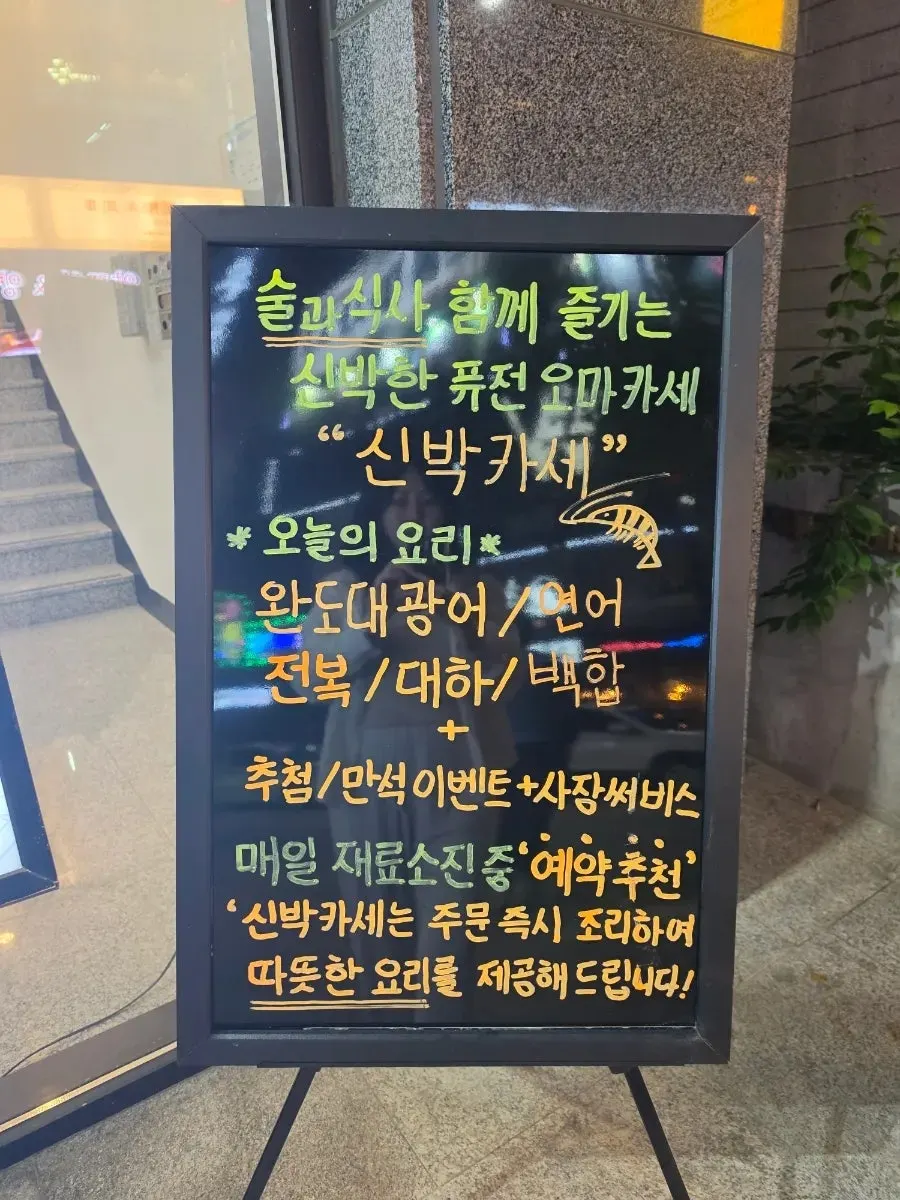 술과 식사 함께 즐기는
신박한 퓨전 오마카세
“신박카세”
*오늘의 요리*
완도대광어/연어
전복/대하/백합
+
추첨/만석이벤트+사장써비스
매일 재료소진중 ‘예약추천’
‘신박카세는 주문 즉시 조리하여
따뜻한 요리를 제공해드립니다!